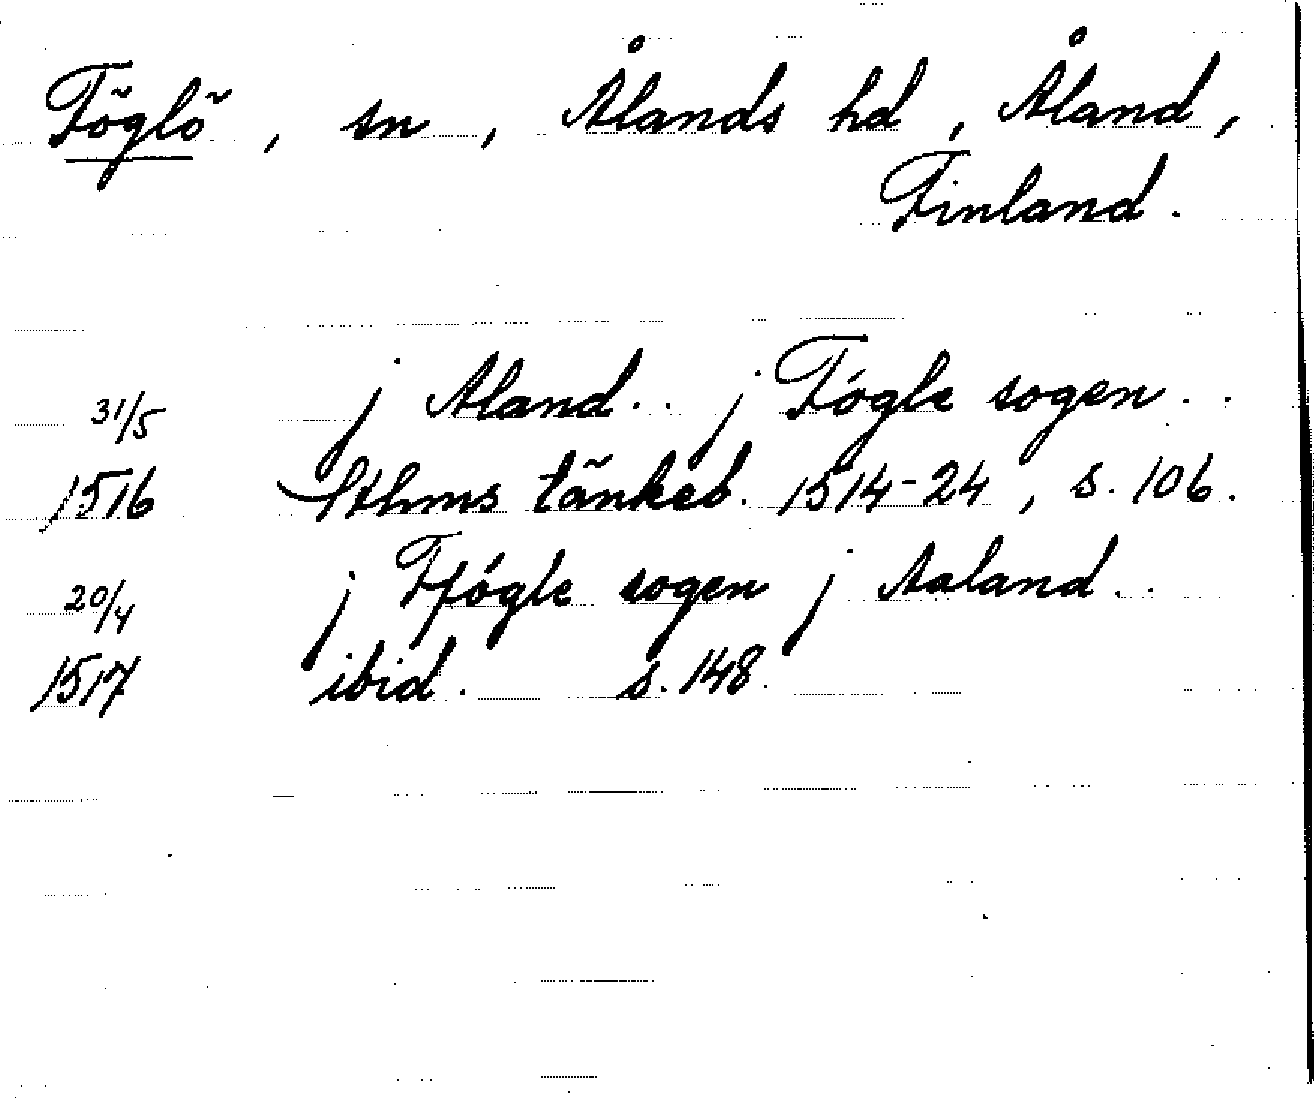 Föglö, sn, Ålands hd, Åland,
Finland.
31/5 j Aland.. j Fógle sogen..
1516 Sthms tänkeb. 1514-24, s. 106.
20/4 j Ffógle sogen j Aaland..
1517 ibid. s. 148.